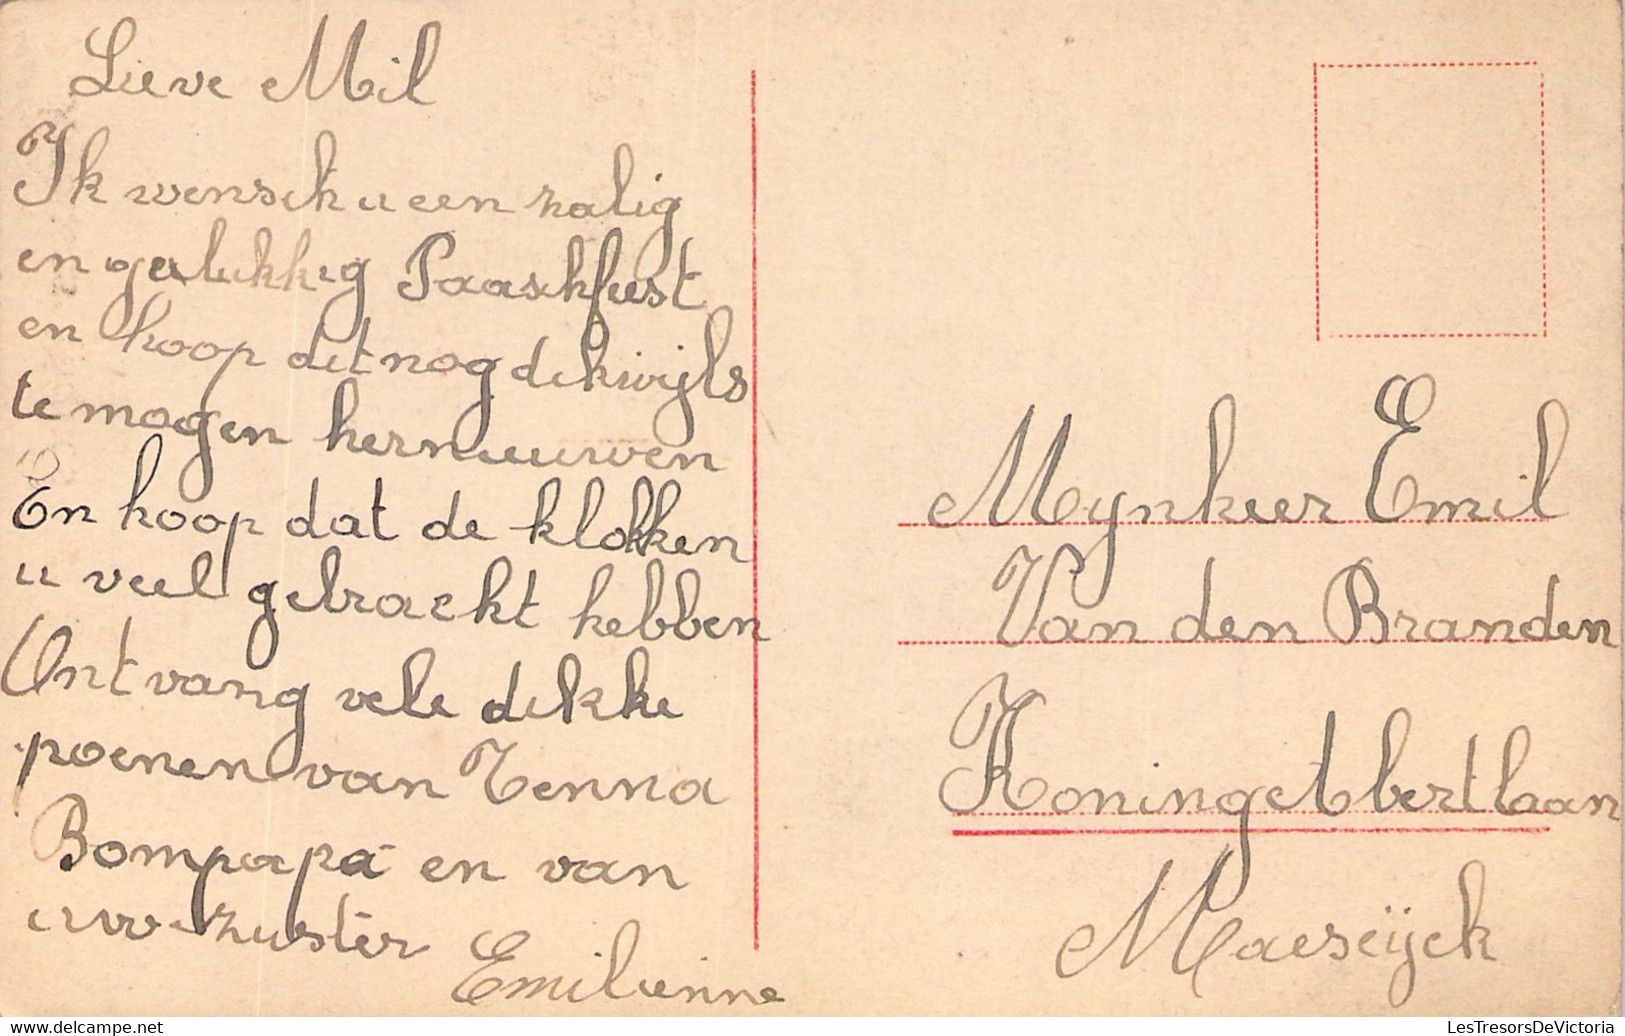 Lieve Mil
Ik wensch u een zalig
en gelukkig Paaschfeest
en hoop dit nog dikwijls
te mogen hernieuwen
En hoop dat de klokken
u veel gebracht hebben
Ontvang vele dikke
poenen van Nenna
Bompapa en van
uw zuster Emilienne
Mynheer Emil
Van den Branden
Koning Albertlaan
Maeseijck
www.delcampe.net
LesTresorsDeVictoria